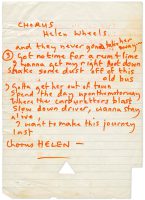 CHORUS
Helen Wheels.
and they never gonna take her away
③ Got no time for a rum time
I wanna get my right foot down
shake some dust off of this old bus
⟩ Gotta get her out of town
Spend the day upon the motorway
Where the carburettors blast
Slow down driver, wanna stay alive
I want to make this journey last
Chorus HELEN —